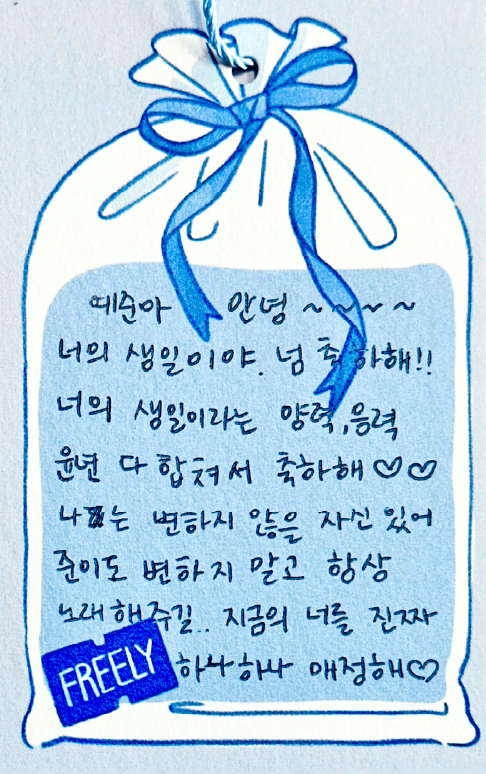 예준아 안녕~~~~
너의 생일이야. 넘 축하해!!
너의 생일이라는 양력, 음력
윤년 다 합쳐서 축하해♡♡
나는 변하지 않을 자신 있어
준이도 변하지 말고 항상
노래해주길.. 지금의 너를 진짜
FREELY 하나하나 애정해♡